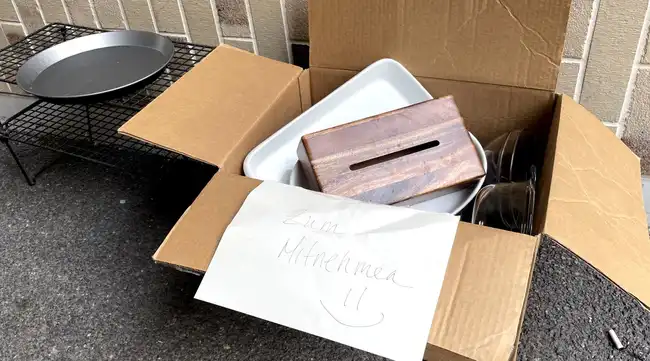 Zum
Mitnehmen
!!